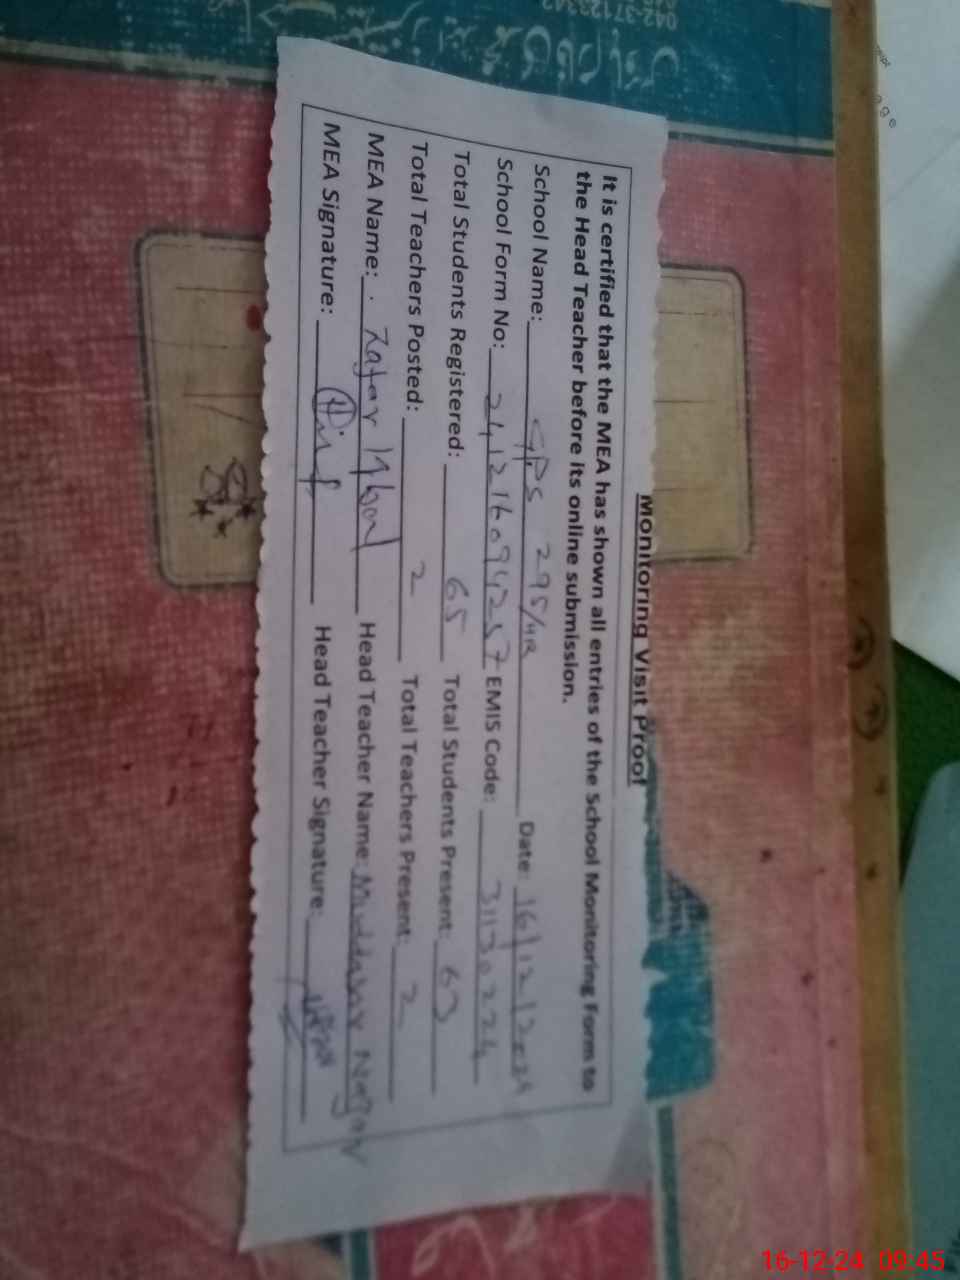 Monitoring Visit Proof
It is certified that the MEA has shown all entries of the School Monitoring Form to
the Head Teacher before its online submission.
School Name: GPS 295/HR Date: 16/12/2024
School Form No: 241216094257 EMIS Code: 31130224
Total Students Registered: 65 Total Students Present: 63
Total Teachers Posted: 2 Total Teachers Present: 2
MEA Name: Zafar Iqbal Head Teacher Name: Muddasir Nazar
MEA Signature: Head Teacher Signature:
16-12-24 09:45